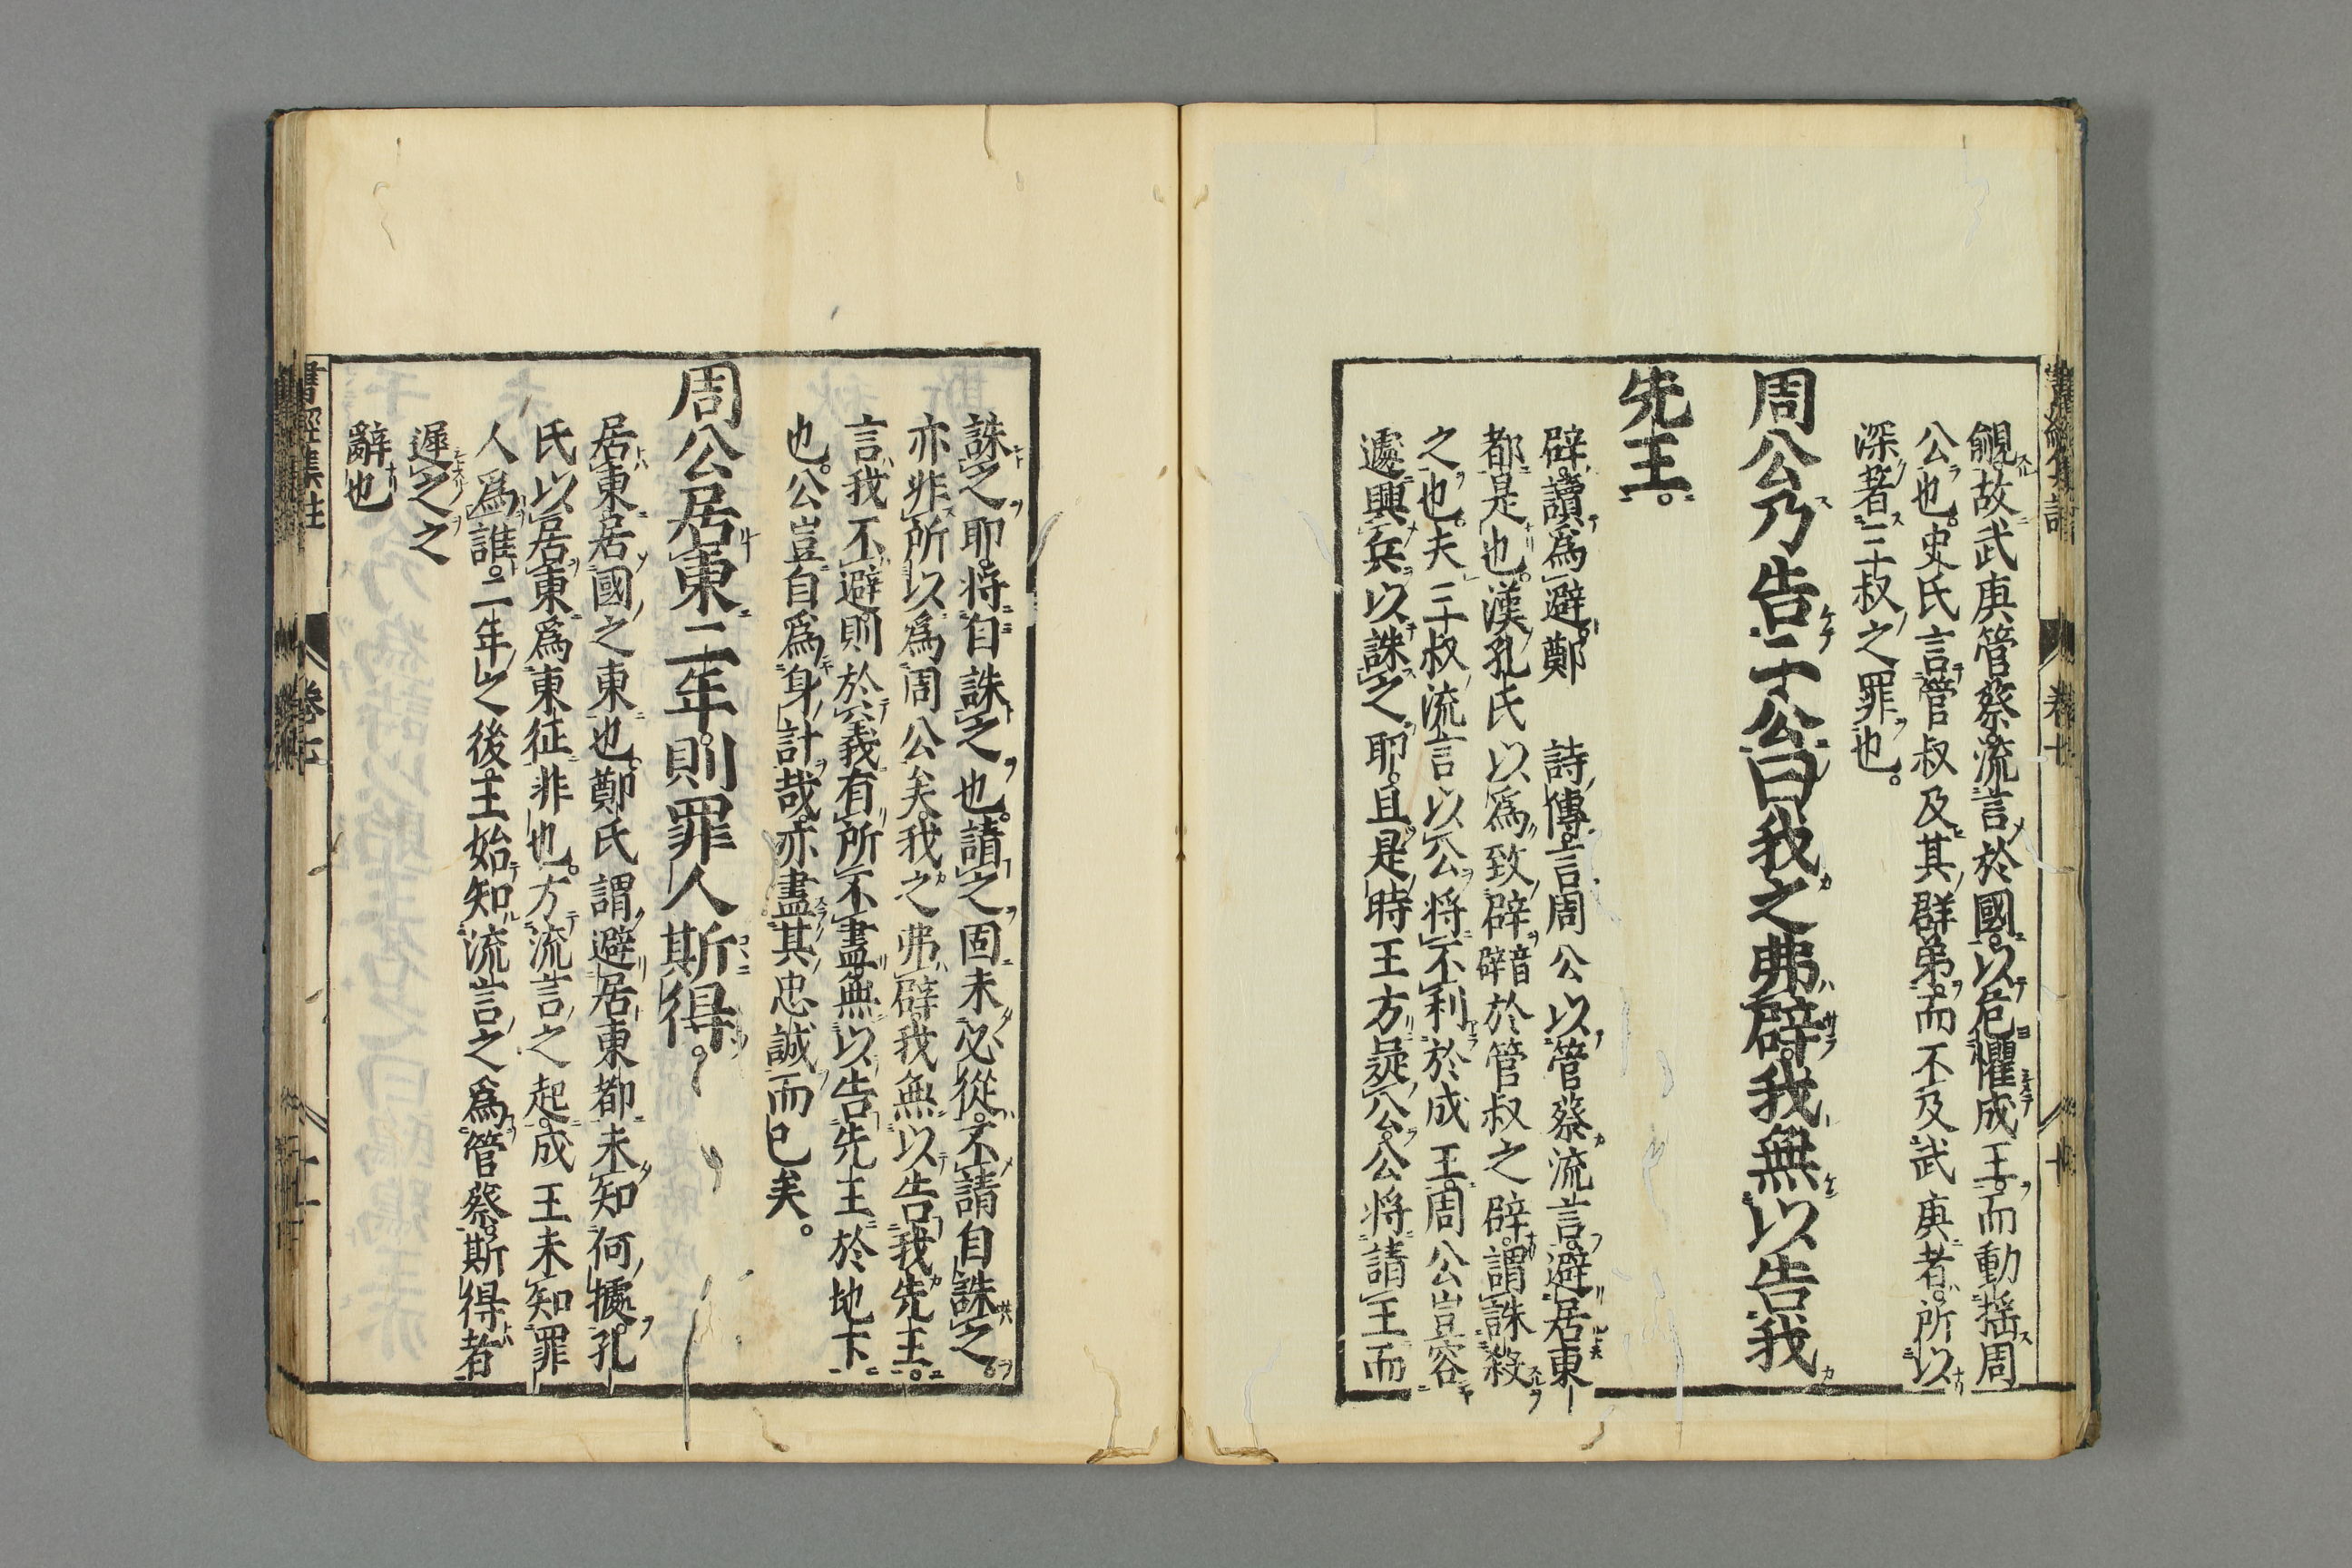 覦故武庚管蔡流言於國以危懼成王而動揺周
公也史氏言管叔及其群弟而不及武庚者所以
深著三叔之罪也
周公乃告二公曰我之弗辟我無以告我
先王
辟讀爲避鄭 詩傳言周公以管蔡流言避居東
都是也漢孔氏以爲致辟辟音於管叔之辟謂誅殺
之也夫三叔流言以公將不利於成王周公豈容
遽興兵以誅之耶且是時王方疑公公將請王而
誅之耶將自誅之也請之固未必從不請自誅之
亦非所以爲周公矣我之弗辟我無以告我先王
言我不避則於義有所不盡無以告先王於地下
也公豈自爲身計哉亦盡其忠誠而已矣
周公居東二年則罪人斯得
居東居國之東也鄭氏謂避居東都未知何據孔
氏以居東爲東征非也方流言之起成王未知罪
人爲誰二年之後王始知流言之爲管蔡斯得者
遲之之
辭也
書經集註 卷七 十一